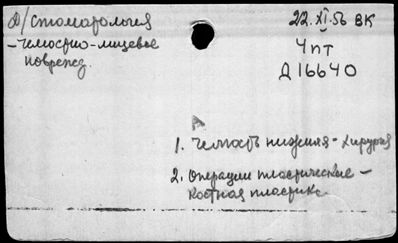 Ф/стоматология
22.XI.56 ВК
– Челюстно-лицевое
поврежд.
4 пт
Д16640
А
1. Челюсть нижняя – хирургия
2. Операции пластические –
костная пластика